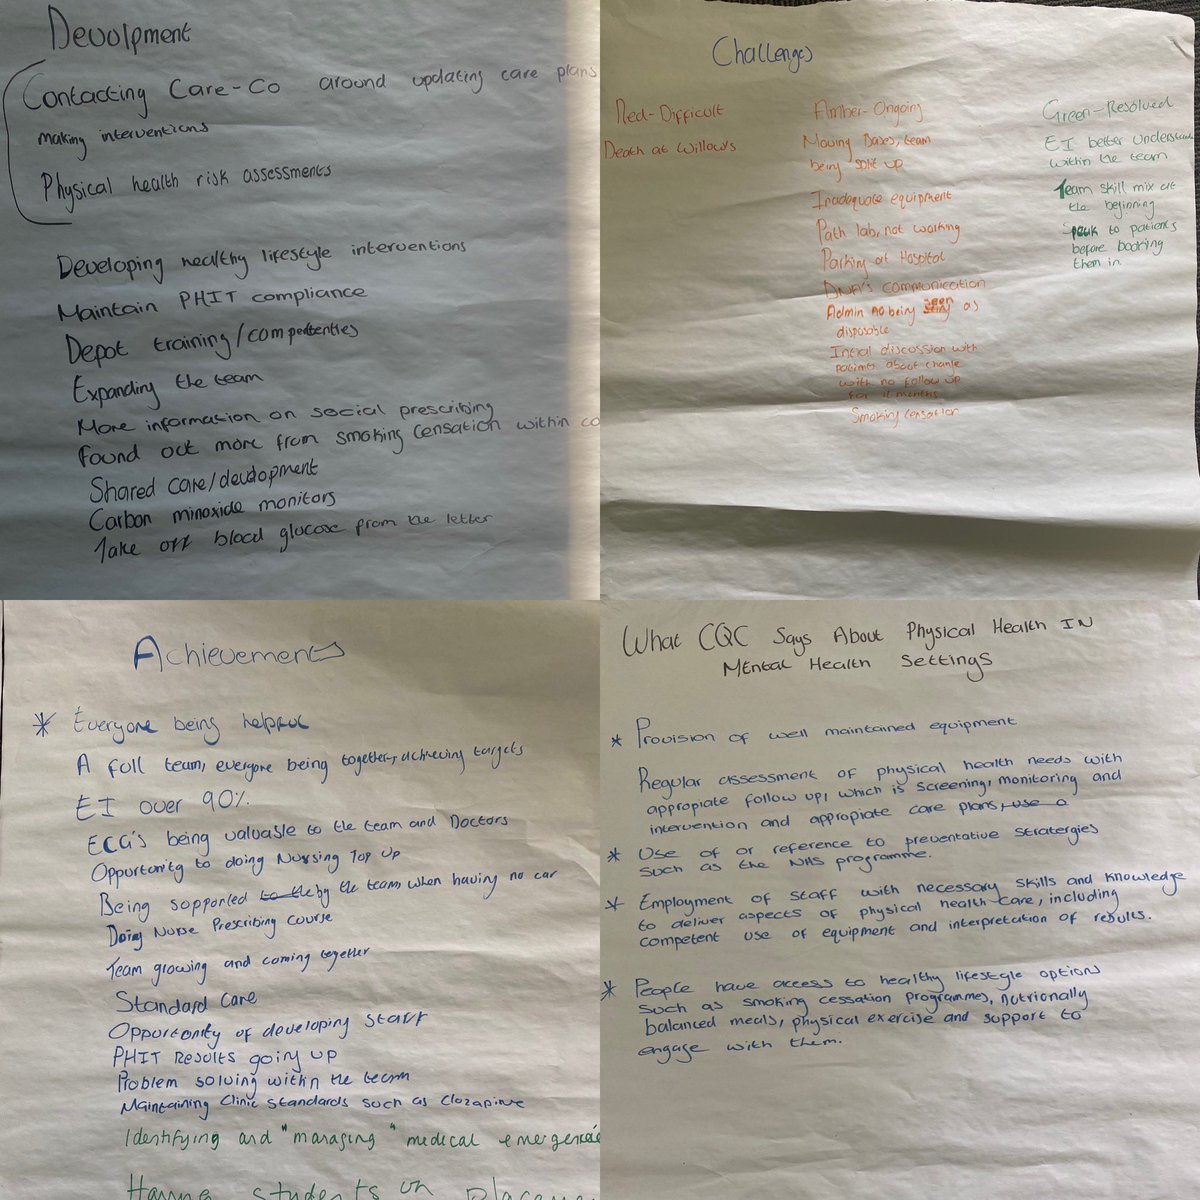 Devolpment
Contacting Care-Co around updating care plans
making interventions
Physical health risk assessments
Developing healthy lifestyle interventions
Maintain PHIT compliance
Depot training/competenties
Expanding the team
More information on social prescribing
found out more from smoking censation within co
Shared care/development
Carbon minoxide monitors
Take off blood glucose from the letter
Challenges
Red-Difficult
Death at Willows
Amber-Ongoing
Moving Bases, team
being split up
Inadequate equipment
Path lab, not working
Parking at Hospital
DNA's communication
Admin no being seen as
disposable
Intial discussion with
patients about change
with no follow up
for 12 months
Smoking censation
Green-Resolved
EI better understa
within the team
Team skill mix at
the beginning
to patients
before booking
them in
Achievements
* Everyone being helpful
A full team, everyone being together, achieving targets
EI over 90%.
ECG's being valuable to the team and Doctors
Opportunity to doing Nursing Top Up
Being supported to the by the team, when having no car
Doing Nurse Prescribing Course
Team growing and coming together
Standard Care
Opportunity of developing staff
PHIT Results going up
Problem solving within the team
Maintaining Clinic standards such as Clozapine
Identifying and "managing" medical emergencie
Having students on placeme
What CQC Says About Physical Health IN
Mental Health Settings
* Provision of well maintained equipment
Regular assessment of physical health needs with
appropiate follow up, which is screening, monitoring and
intervention and appropiate care plans, use o
* Use of or reference to preventative stratergies
such as the NHS programme.
* Employment of staff with necessary skills and knowledge
to deliver aspects of physical health care, including
competent use of equipment and interpretation of results.
* People have access to healthy lifestyle options
such as smoking cessation programmes, nutrionally
balanced meals, physical exercise and support to
engage with them.